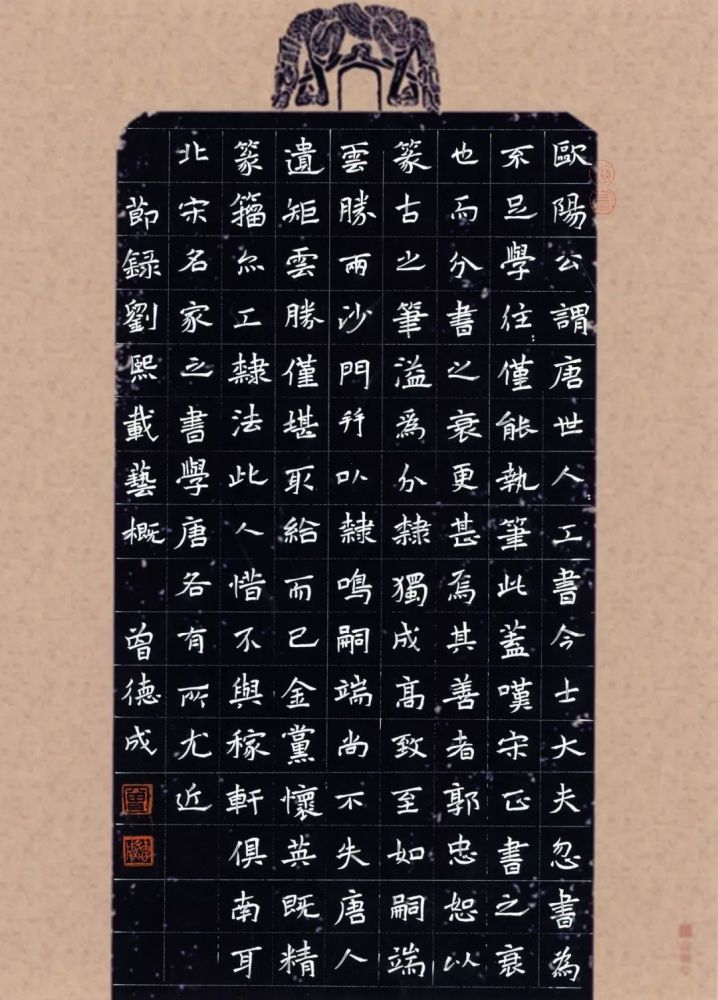 歐陽公謂唐世人工書今士大夫忽書為
不足學往僅能執筆此蓋嘆宋正書之衰
也而分書之衰更甚焉其善者郭忠恕以
篆古之筆溢為分隸獨成高致至如嗣端
雲勝兩沙門並以隸鳴嗣端尚不失唐人
遺矩雲勝僅堪取給而已金黨懷英既精
篆籀亦工隸法此人惜不與稼軒俱南耳
北宋名家之書學唐各有所尤近
節録劉熙載藝概 曾德成